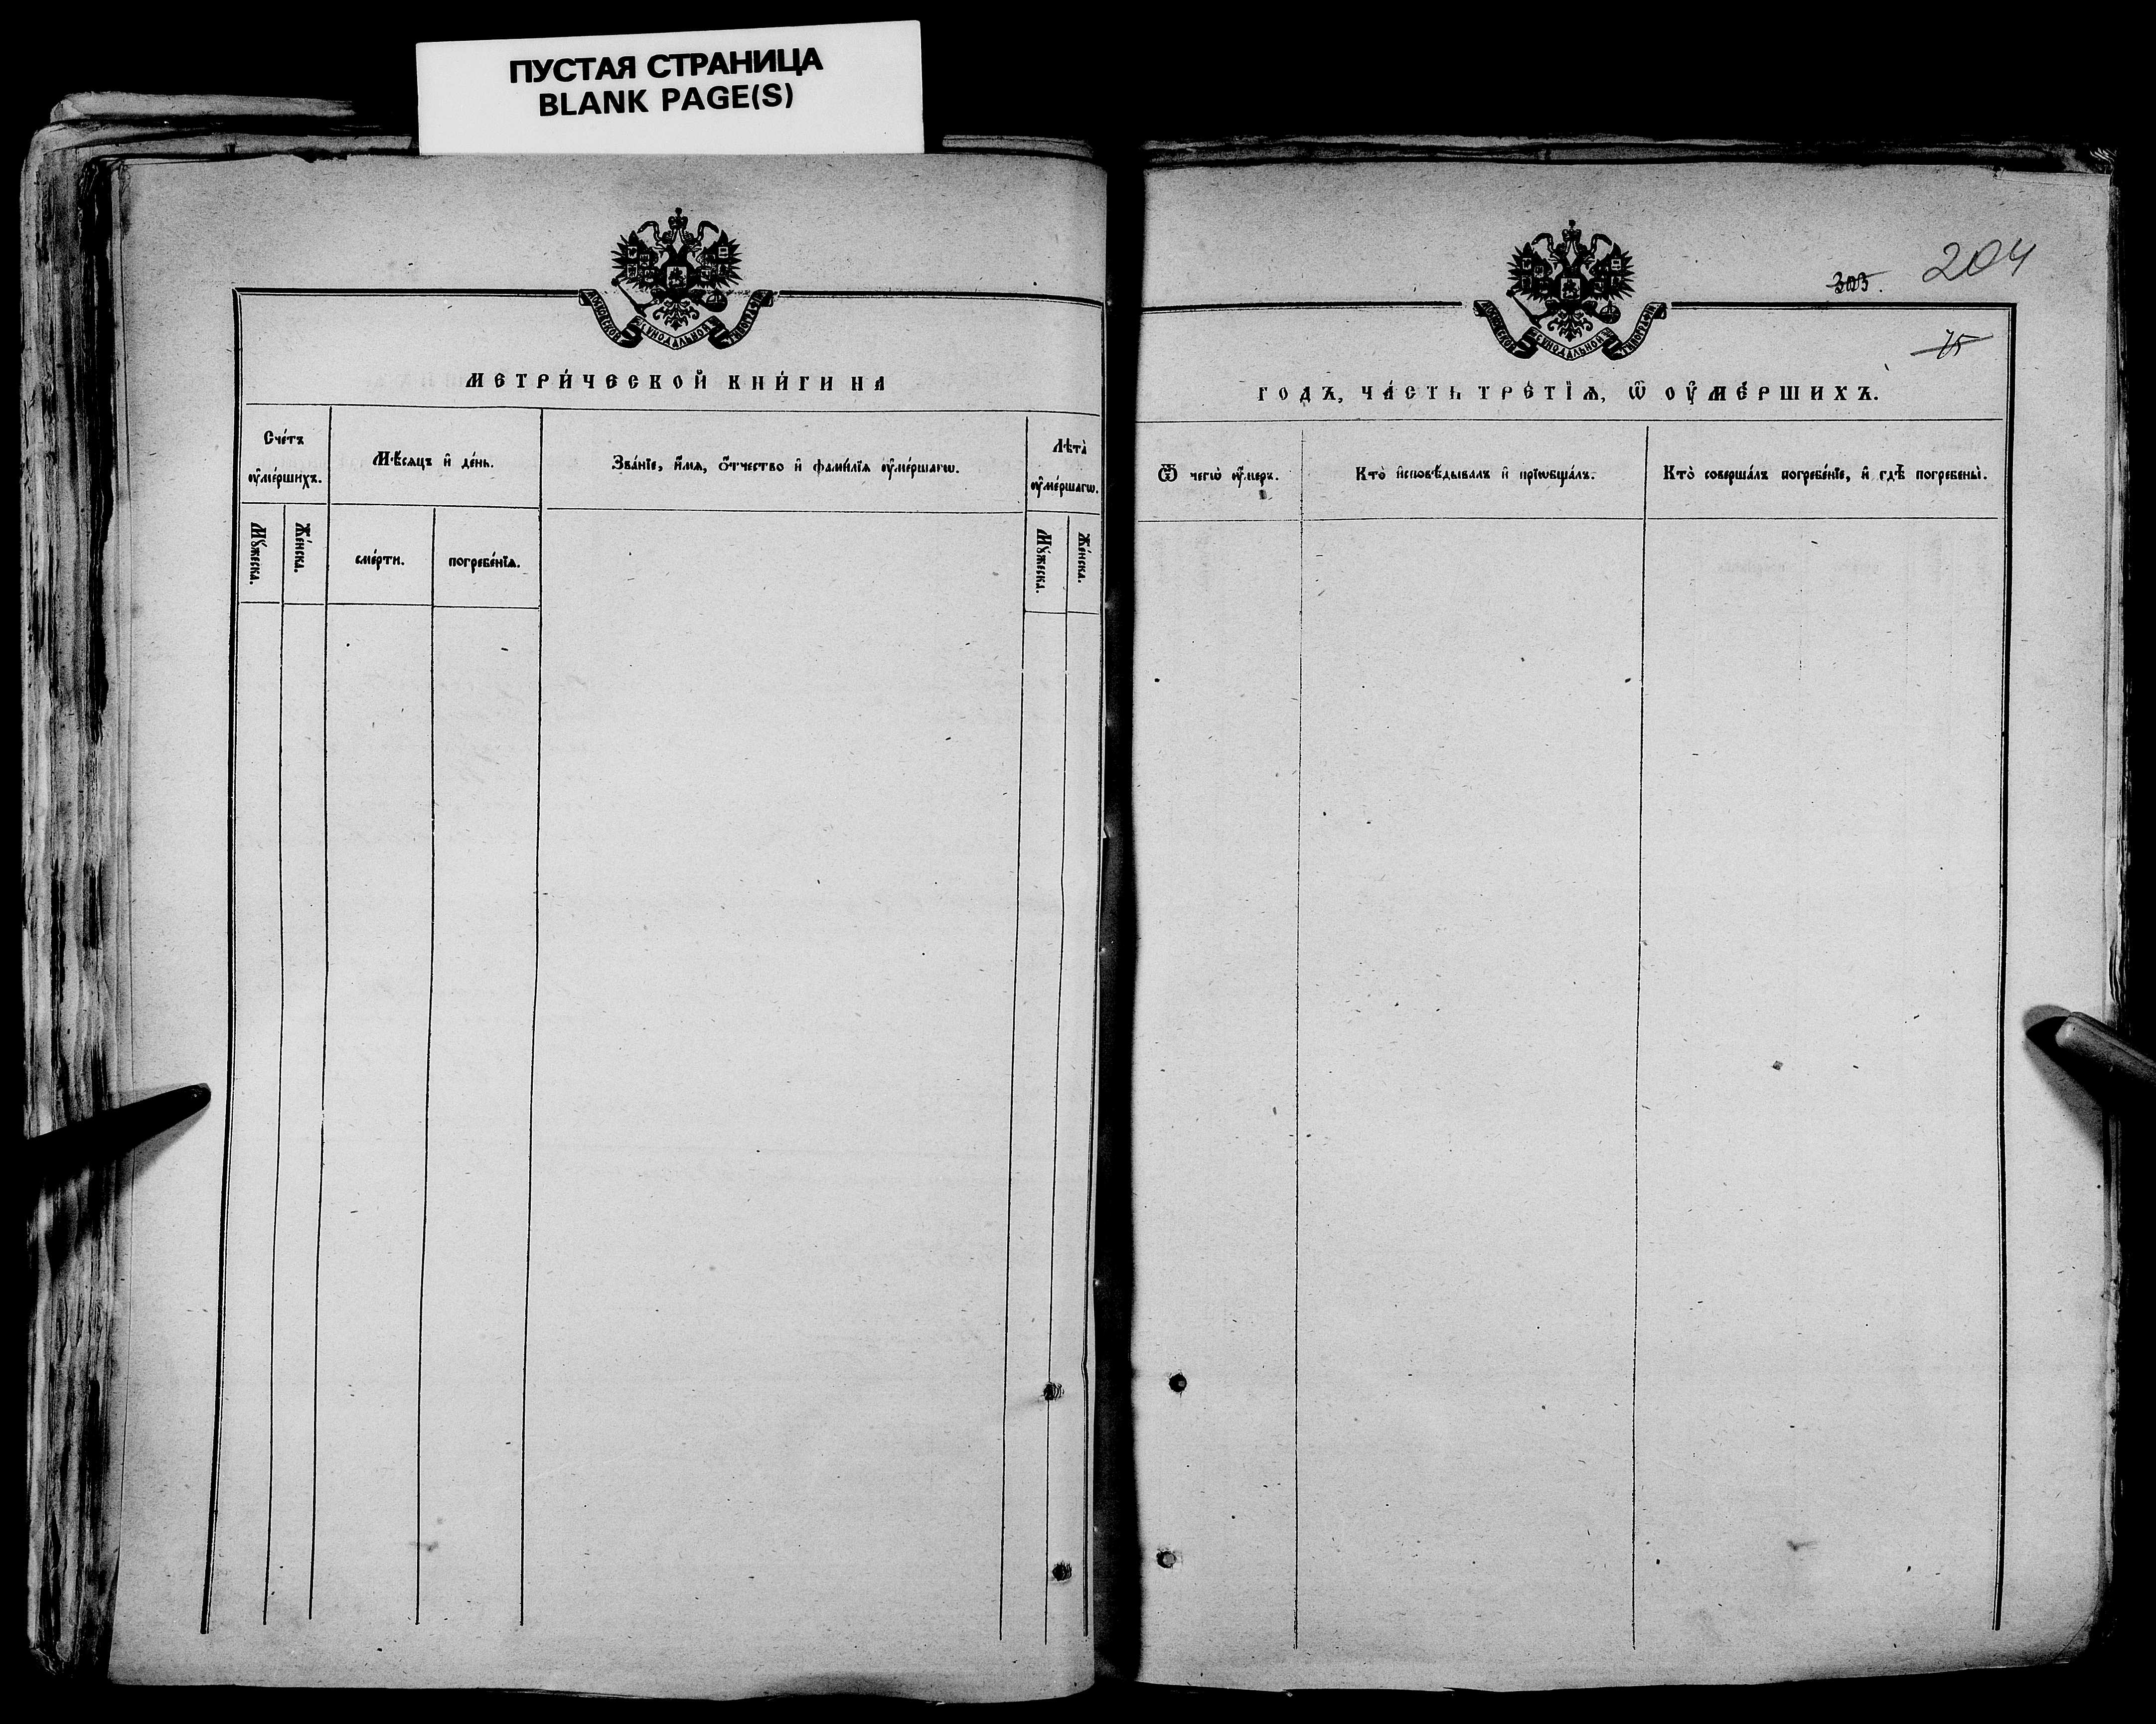 ПУСТАЯ СТРАНИЦА
BLANK PAGE(S)
МОСКОВСКОЙ СѴНОДАЛЬНОЙ ТѴПОГРАФІИ
МЕТРИ́ЧЕСКОЙ КНИ́ГИ НА
Сче́тъ ᲂу҆ме́ршихъ.
Мѣ́сяцъ и҆ де́нь.
Зва́нїе, и҆́мя, ѻ҆́тчество и҆ фами́лїя ᲂу҆ме́ршагѡ.
Лѣта̀ ᲂу҆ме́ршагѡ.
Мꙋ́жеска.
Же́нска.
сме́рти.
погребе́нїѧ.
Мꙋ́жеска.
Же́нска.
204
303.
75
МОСКОВСКОЙ СѴНОДАЛЬНОЙ ТѴПОГРАФІИ
ГОДЪ, ЧА́СТЬ ТРЕ́ТЇѦ, Ѡ҆ ОУ҆МЕ́РШИХЪ.
Ѿ чегѡ̀ ᲂу҆́меръ.
Кто̀ и҆сповѣ́дывалъ и҆ прїѡбща́лъ.
Кто̀ соверша́лъ погребе́нїе, и҆ гдѣ̀ погребены̀.